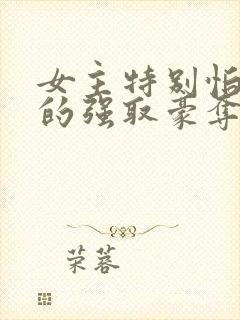 女主特别怕
的强取豪夺
荣蓉